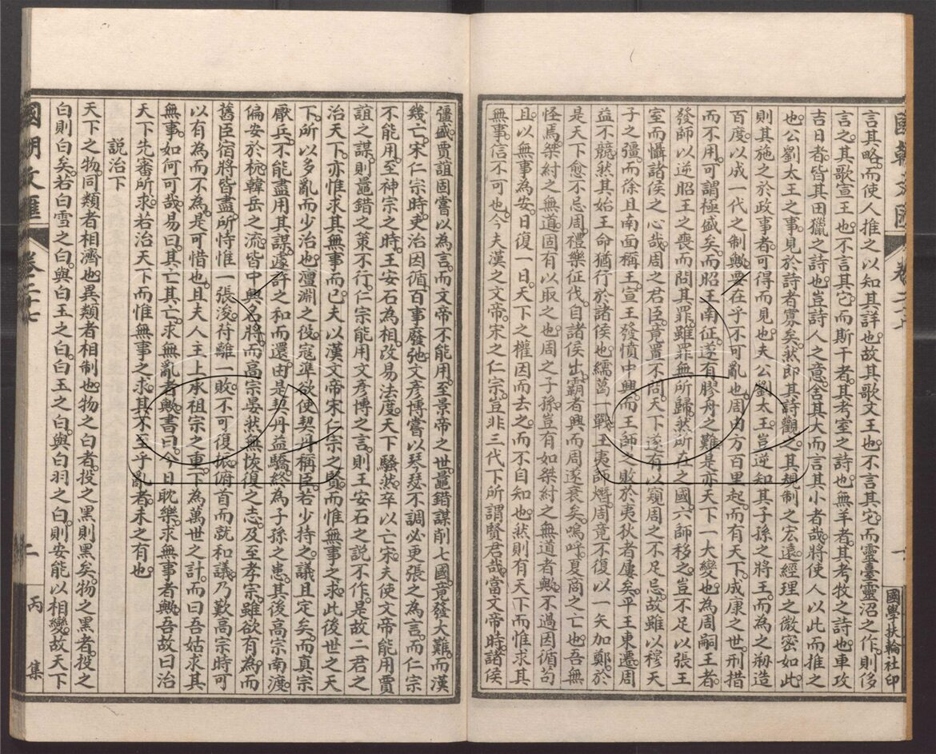 國朝文匯 卷二十七 一 國學扶輪社印
言其略而使人推之以知其詳也故其歌文王也不言其它而靈臺靈沼之作則侈
言之其歌宣王也不言其它而斯干者其考室之詩也無羊者其考牧之詩也車攻
吉日者皆其田獵之詩也豈詩人之意舍其大而言其小者哉將使人以此而推之
也公劉太王之事見於詩者寡矣然即其詩觀之其規制之宏遠經理之微密如此
則其施之於政事者可得而見也夫公劉太王豈逆知其子孫之將王而為之刱造
百度以成一代之制與要在乎不可亂也周由方百里起而有天下成康之世刑措
而不用可謂極盛矣而昭王南征遂有膠舟之難是亦天下一大變也為周嗣王者
發師以逆昭王之喪而問其罪雖罪無所歸然所在之國六師移之豈不足以張王
室而懾諸侯之心哉周之君臣竟置不問天下遂有以窺周之不足忌故雖以穆天
子之彊而徐且南面稱王宣王發憤中興而王師敗於夷狄者屢矣平王東遷周
益不競然其始王命猶行於諸侯也繻葛一戰王夷師熸周竟不復以一矢加鄭於
是天下愈不忌周禮樂征伐自諸侯出霸者興而周遂衰矣嗚呼夏商之亡也吾無
怪焉桀紂之無道固有以取之也周之子孫豈有如桀紂之無道者與不過因循苟
且以無事為安日復一日天下之權因而去之而不自知也然則有天下而惟求其
無事信不可也今夫漢之文帝宋之仁宗豈非三代下所謂賢君哉當文帝時諸侯
彊盛賈誼固嘗以為言而文帝不能用至景帝之世鼂錯謀削七國竟發大難而漢
幾亡宋仁宗時吏治因循百事廢弛文彥博嘗以琴瑟不調必更張之為言而仁宗
不能用至神宗之時王安石為相改易法度天下騷然卒以亡宋夫使文帝能用賈
誼之謀則鼂錯之策不行仁宗能用文彥博之言則王安石之說不作是故二君之
治天下亦惟求其無事而已夫以漢文帝宋仁宗之賢而惟無事之求此後世之天
下所以多亂而少治也澶淵之役寇準欲使契丹稱臣若少持之議且定矣而真宗
厭兵不能盡用其謀遽許之和而還由是契丹益驕終為子孫之患其後高宗南渡
偏安於杭韓岳之流皆中興名將而高宗晏然無恢復之志及至孝宗雖欲有為而
舊臣宿將皆盡所恃惟一張浚符離一敗不可復振俯首而就和議乃歎高宗時可
以有為而不為是可惜也且夫人主上承祖宗之重下為萬世之計而曰吾姑求其
無事如何可哉易曰其亡其亡求無亂者與書曰今日耽樂求無事者與吾故曰治
天下先審所求若治天下而惟無事之求其不至乎亂者未之有也
說治下
天下之物同類者相濟也異類者相制也物之白者投之黑則黑矣物之黑者投之
白則白矣若白雪之白與白玉之白白玉之白與白羽之白則安能以相變故天下
國朝文匯 卷二十七 二 丙集